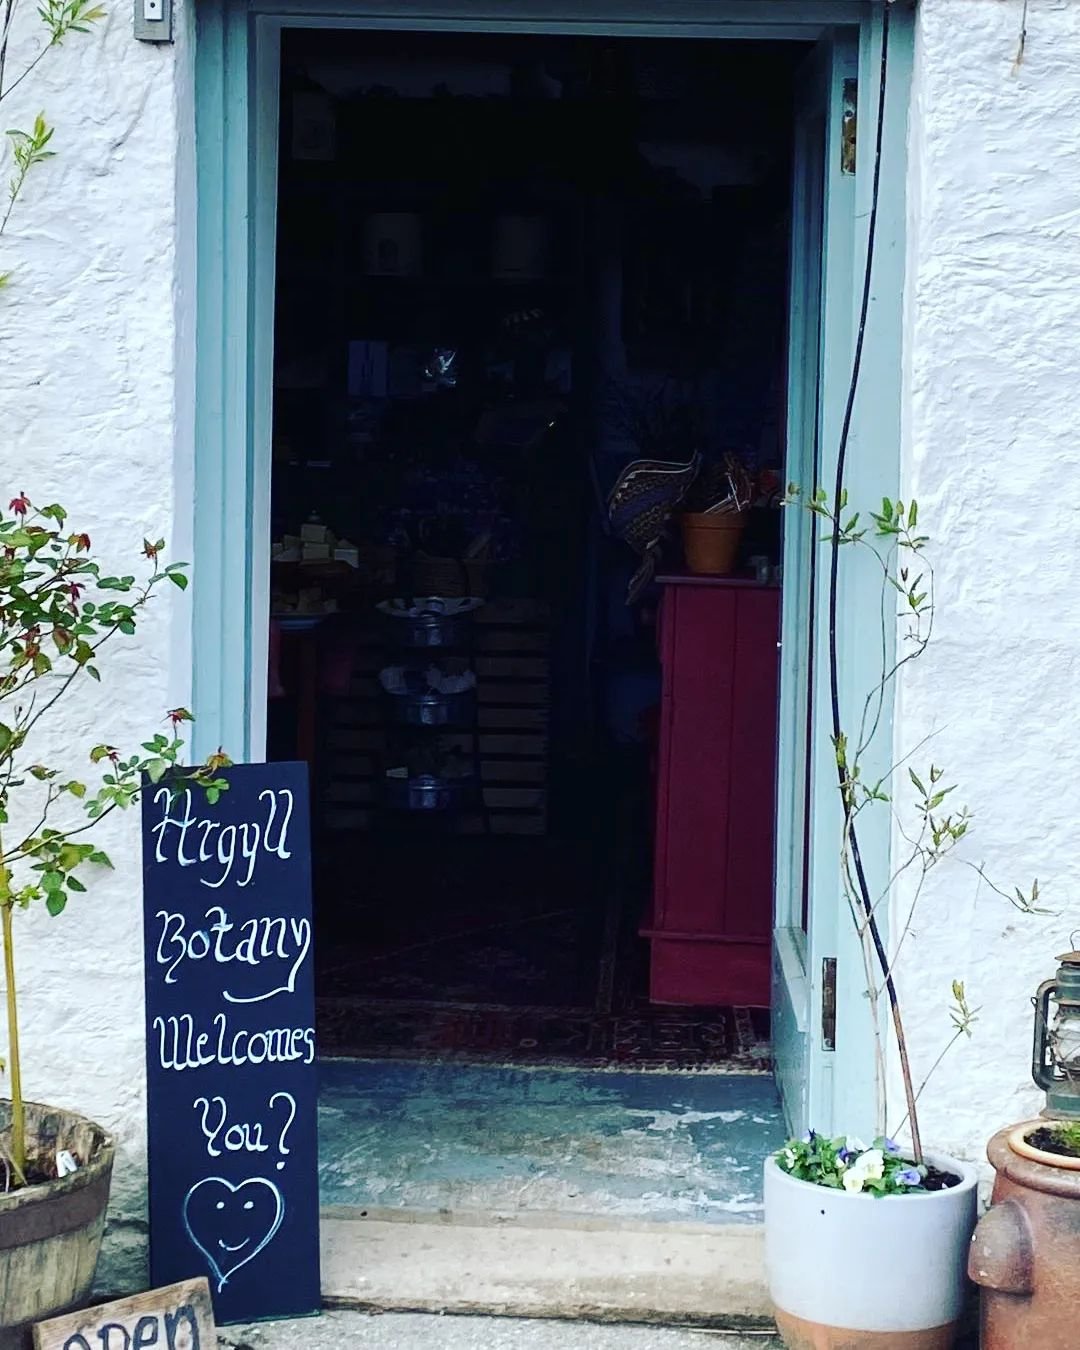 Argyll
Botany
Welcomes
You?
open